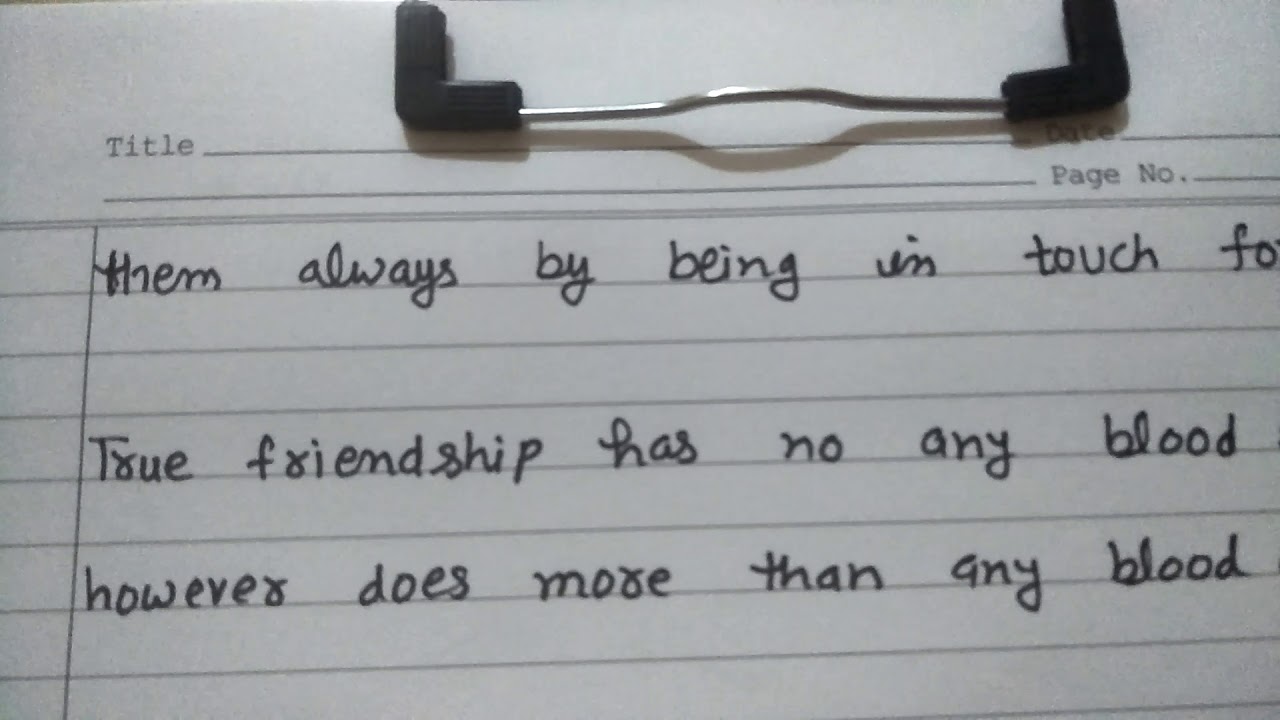 Title
Date
Page No.
them always by being in touch fo
True friendship has no any blood
however does more than any blood